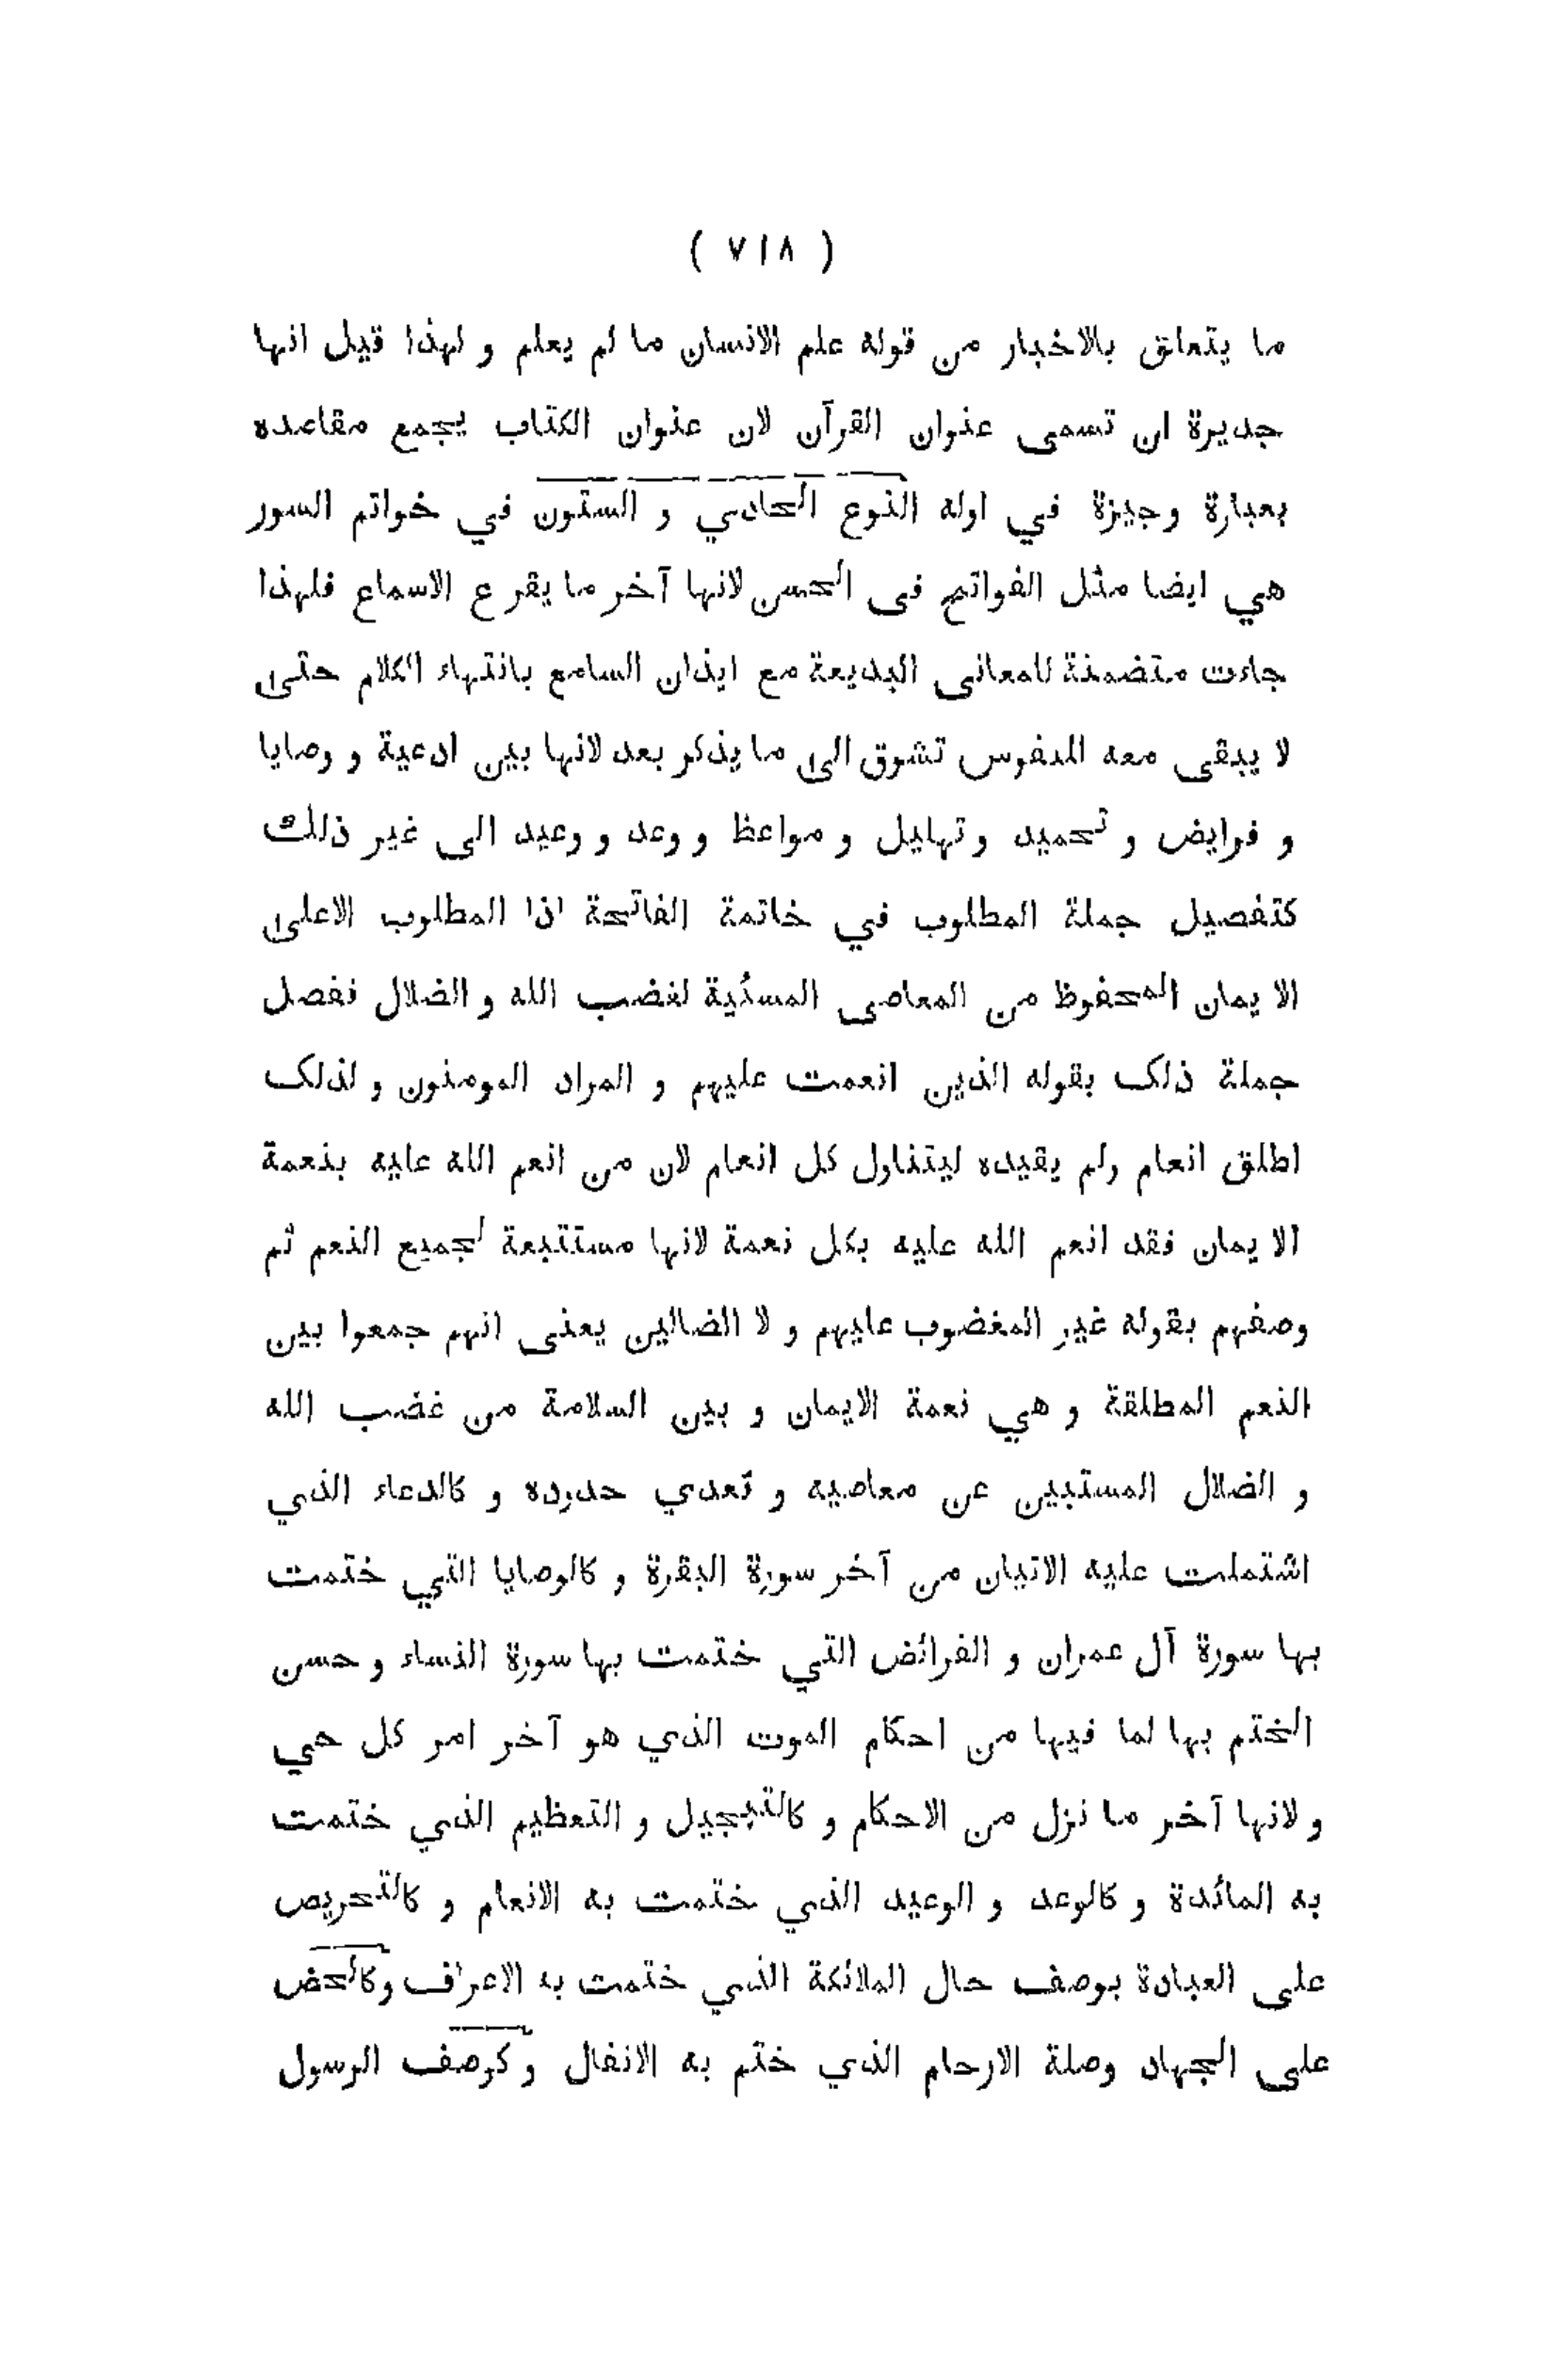 ( ٧١٨ )
ما يتعلق بالاخبار من قوله علم الانسان ما لم يعلم و لهذا قيل انها
جديرة ان تسمى عنوان القرآن لان عنوان الكتاب يجمع مقاعده
بعبارة وجيزة في اوله النوع الحادي و الستون في خواتم السور
هي ايضا مثل الفواتح فى الحسن لانها آخر ما يقرع الاسماع فلهذا
جاءت متضمنة للمعانى البديعة مع ايذان السامع بانتهاء الكلام حتى
لا يبقى معه للنفوس تشوق الى ما يذكر بعد لانها بين ادعية و وصايا
و فرايض و تحميد و تهليل و مواعظ و وعد و وعيد الى غير ذلك
كتفصيل جملة المطلوب في خاتمة الفاتحة اذا المطلوب الاعلى
الايمان المحفوظ من المعاصى المسئية لغضب الله و الضلال نفصل
جملة ذلك بقوله الذين انعمت عليهم و المراد المومنون و لذلك
اطلق انعام ولم يقيده ليتناول كل انعام لان من انعم الله عليه بنعمة
الايمان فقد انعم الله عليه بكل نعمة لانها مستتبعة لجميع النعم ثم
وصفهم بقوله غير المغضوب عليهم و لا الضالين يعنى انهم جمعوا بين
النعم المطلقة و هي نعمة الايمان و بين السلامة من غضب الله
و الضلال المستبين عن معاصيه و تعدي حدوده و كالدعاء الذي
اشتملت عليه الاتيان من آخر سورة البقرة و كالوصايا التي ختمت
بها سورة آل عمران و الفرائض التي ختمت بها سورة النساء و حسن
الختم بها لما فيها من احكام الموت الذي هو آخر امر كل حي
و لانها آخر ما نزل من الاحكام و كالتبجيل و التعظيم الذي ختمت
به المائدة و كالوعد و الوعيد الذي ختمت به الانعام و كالتحريص
على العبادة بوصف حال الملائكة الذي ختمت به الاعراف وكالحض
على الجهاد وصلة الارحام الذي ختم به الانفال و كوصف الرسول